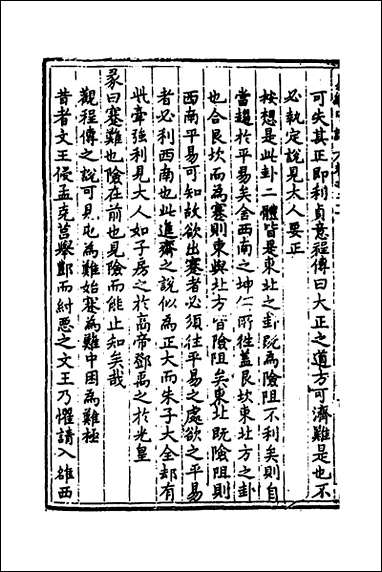 可失其正即利貞意程傳曰大正之道方可濟難是也不
必執定說見大人要正
按想是此卦二體皆是東北之卦既為險阻不利矣則自
當趨於平易矣舍西南之坤何所往蓋艮坎東北方之卦
也合艮坎而為蹇則東與北方皆險阻矣東北既險阻則
西南平易可知故欲出蹇者必須往平易之處欲之平易
者必利西南也此進齋之說似為正大而朱子大全却有
此牽強利見大人如子房之於高帝鄧禹之於光皇
彖曰蹇難也險在前也見險而能止知矣哉
觀程傳之說可見屯為難始蹇為難中困為難極
昔者文王侵孟克莒舉酆而紂惡之文王乃懼請入雒西